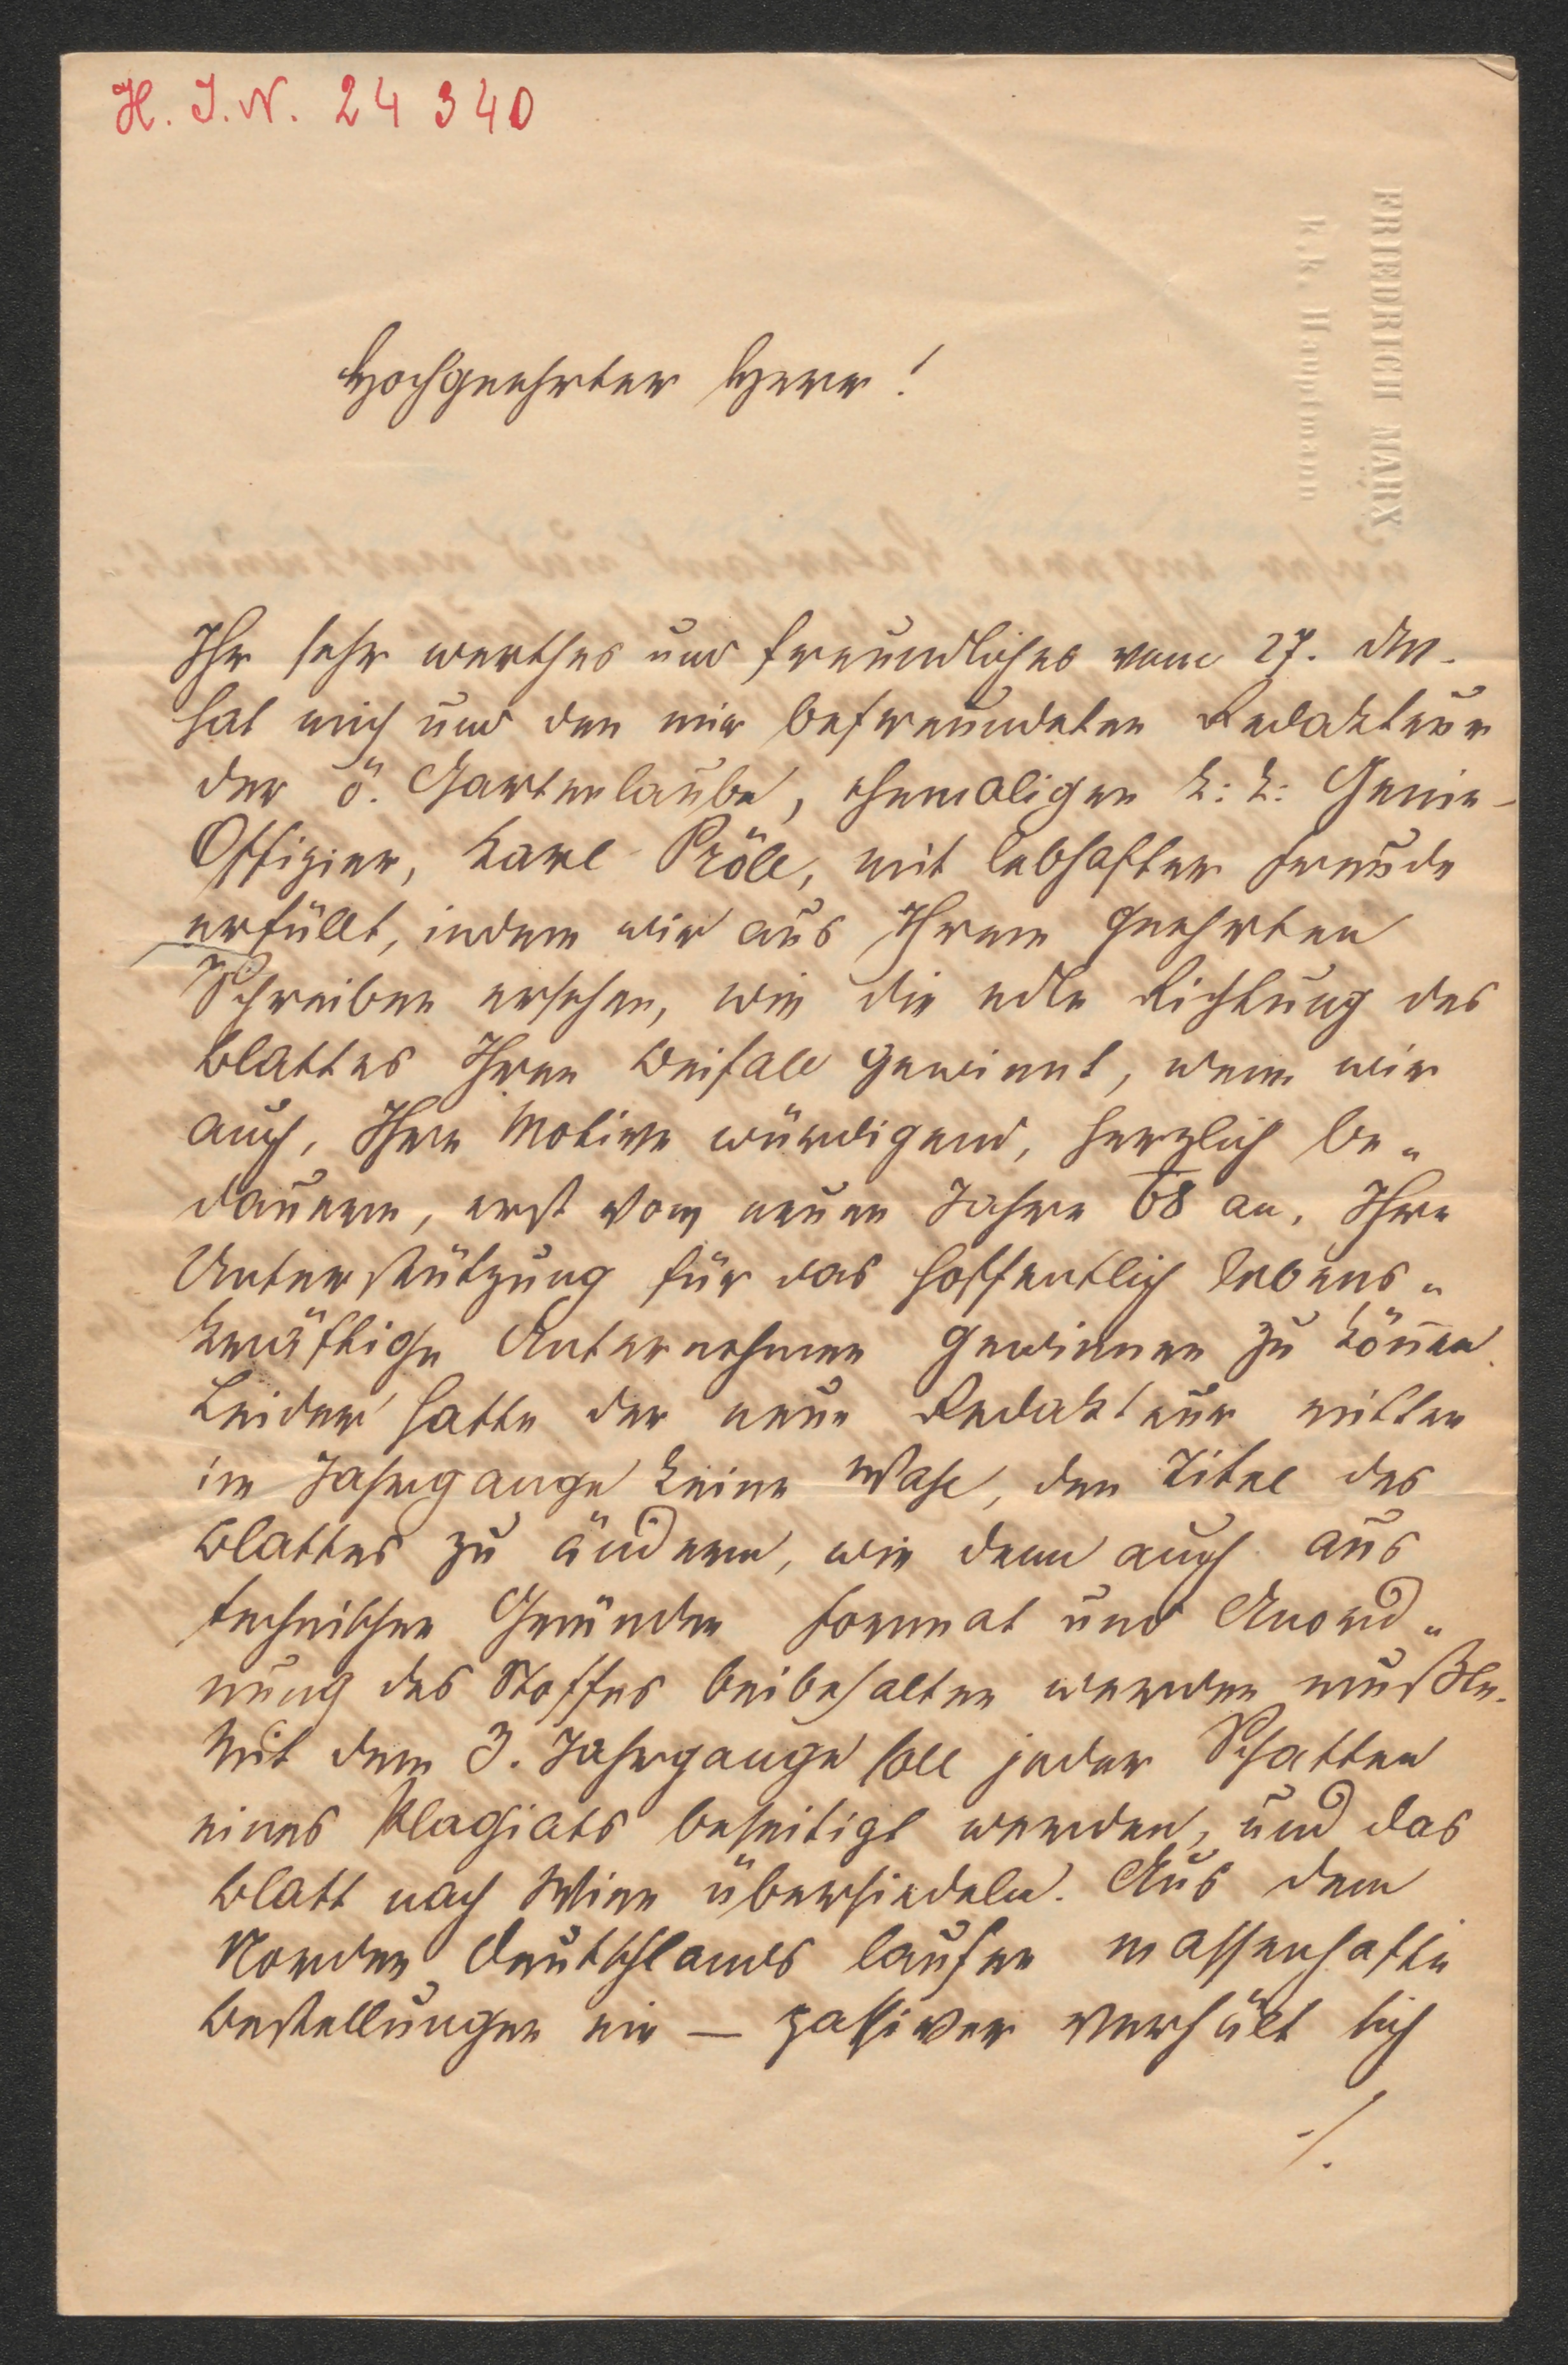 H. I. N. 24 340
FRIEDRICH MARX
k. k. Hauptmann
Hochgeehrter Herr!
Ihr sehr werthes und freundliches vom 27. dM.
hat mich und den mir befreundeten Redakteur
der ö. Gartenlaube, ehemaligen k: k: Genie-
Offizier, Karl Pröll, mit lebhafter Freude
erfüllt, indem wir aus Ihrem geehrten
Schreiben ersehen, wie die edle Richtung des
Blattes Ihren Beifall gewinnt, wenn wir
auch, Ihre Motive würdigend, herzlich be„
dauern, erst vom neuen Jahre 68 an, Ihre
Unterstützung für das hoffentlich lebens„
kräftige Unternehmen gewinnen zu können.
Leider hatte der neue Redakteur mitten
im Jahrgange keine Wahl, den Titel des
Blattes zu ändern, wie denn auch aus
technischen Gründen Format und Anord„
nung des Stoffes beibehalten werden mußte.
Mit dem 3. Jahrgange soll jeder Schatten
eines Plagiats beseitigt werden, und das
Blatt nach Wien übersiedeln. Aus dem
Norden Deutschlands laufen massenhafte
Bestellungen ein — passiver verhält sich
./.